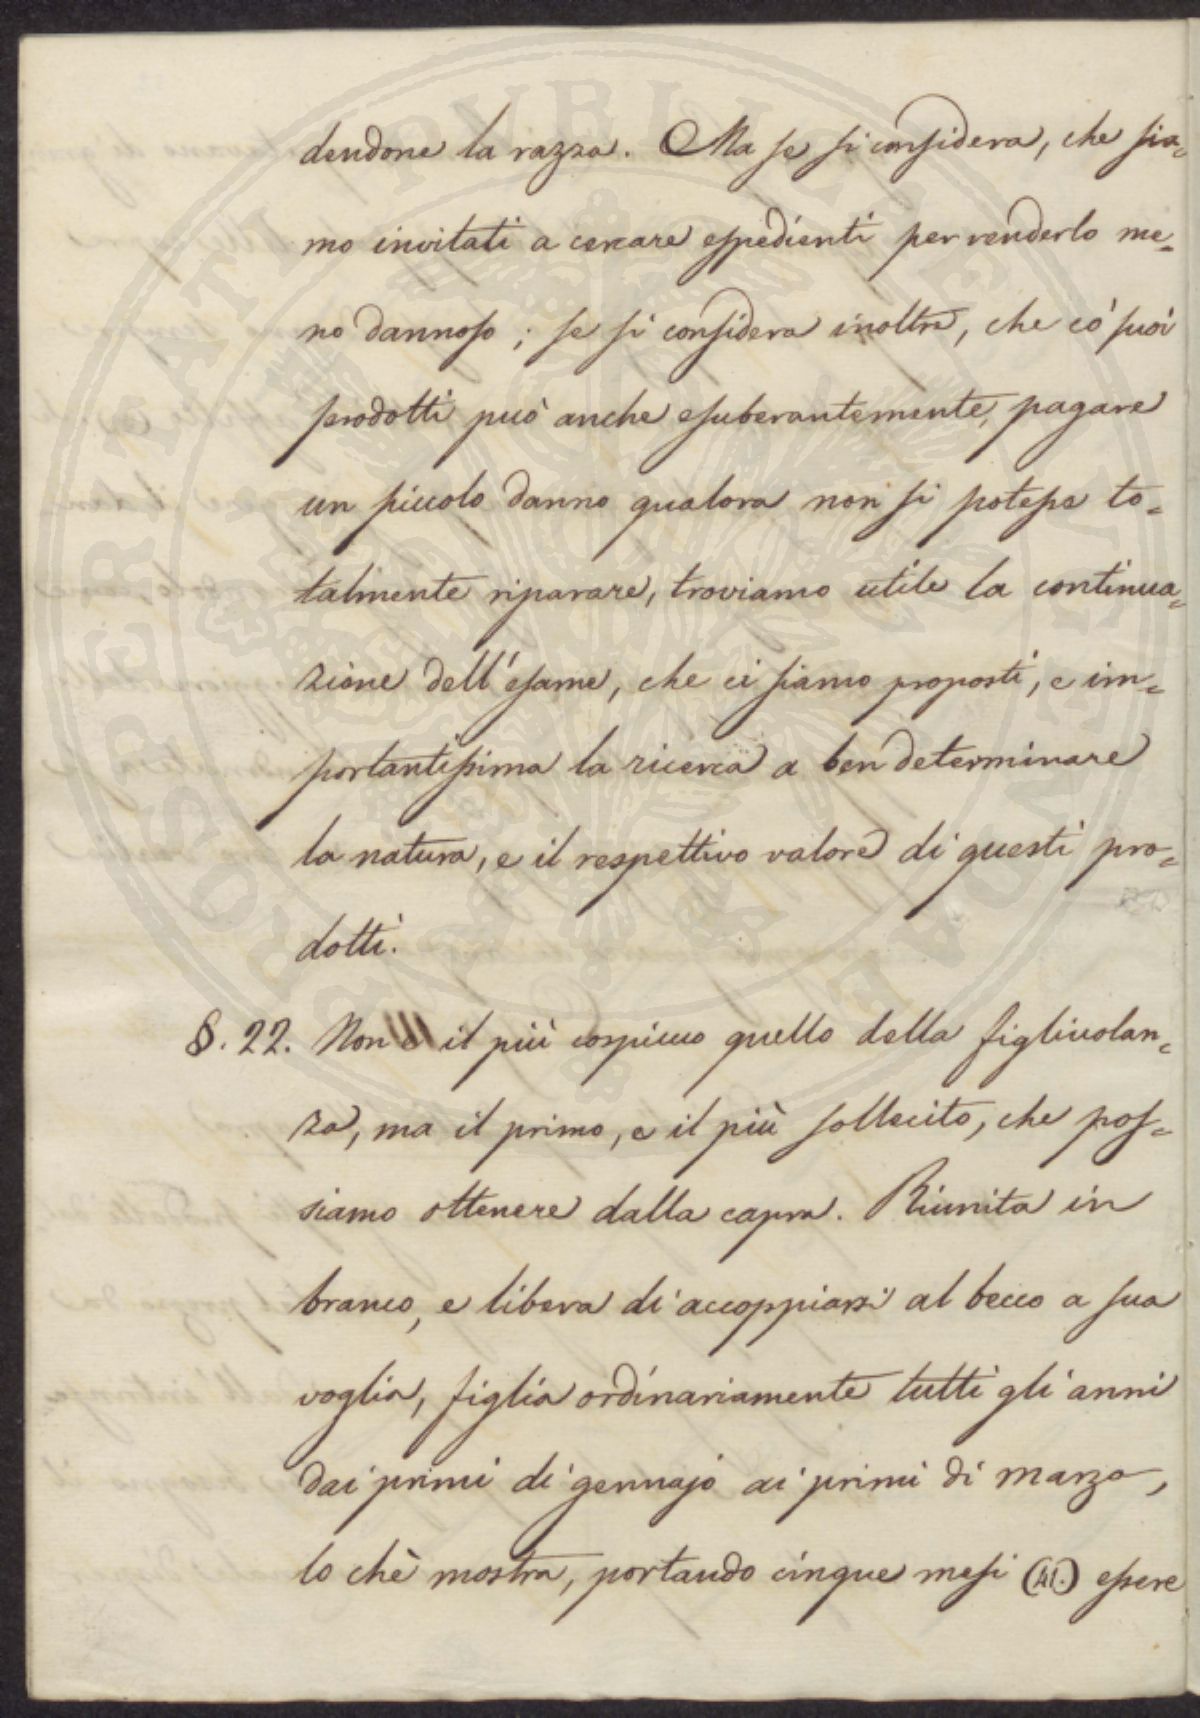 dendone la razza. Ma se si considera, che sia=
mo invitati a cercare espedienti per renderlo me=
no dannoso; se si considera inoltre, che co' suoi
prodotti può anche esuberantemente, pagare
un piccolo danno qualora non si potesse to=
talmente riparare, troviamo utile la continua=
zione dell'esame, che ci siamo proposti, e im=
portantissima la ricerca a ben determinare
la natura, e il respettivo valore di questi pro=
dotti.
§. 22. Non è il più cospicuo quello della figliuolan=
za, ma il primo, e il più sollecito, che pos=
siamo ottenere dalla capra. Riunita in
branco, e libera di accoppiarsi al becco a sua
voglia, figlia ordinariamente tutti gli anni
dai primi di gennajo ai primi di marzo,
lo chè mostra, portando cinque mesi (41.) essere
PROSPERITATI PUBLICAE AUGENDAE